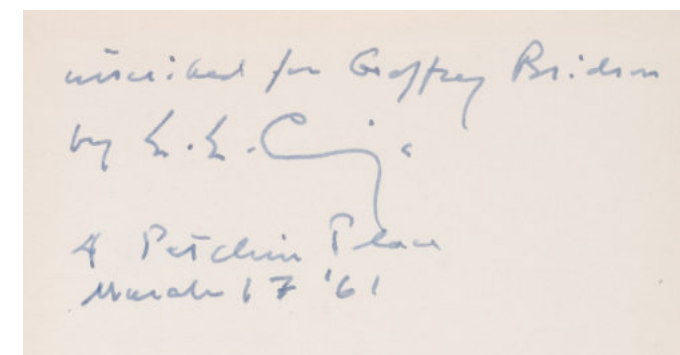 inscribed for Geoffrey Bridson
by E. E. Cummings
4 Patchin Place
March 17 '61